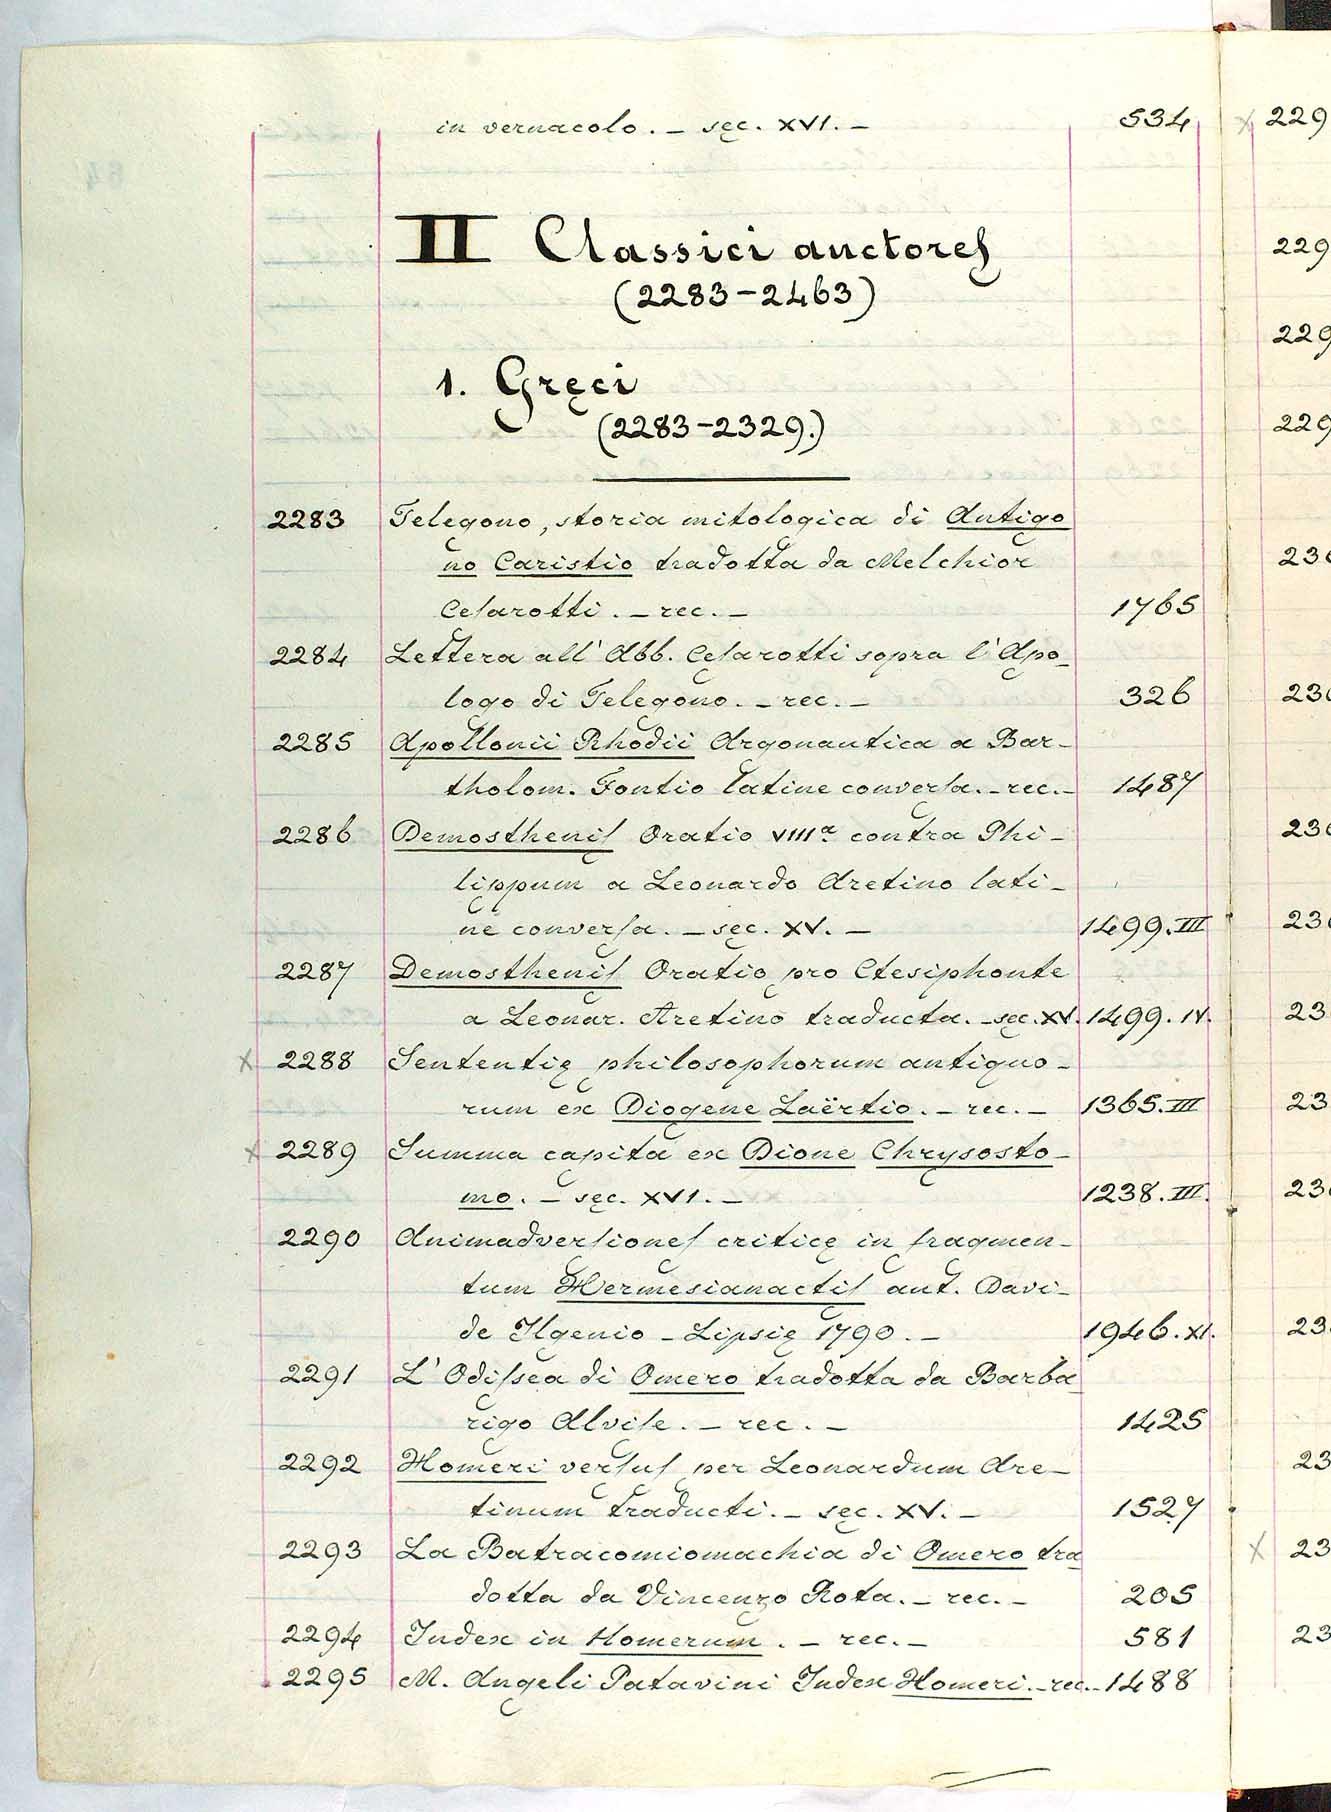 in vernacolo. – sęc. XVI. – 534
II Classici auctores
(2283–2463)
1. Gręci
(2283–2329.)
2283 Telegono, storia mitologica di Antigo
no Caristio tradotta da Melchior
Cesarotti. – rec. – 1765
2284 Lettera all' Abb. Cesarotti sopra l'Apo-
logo di Telegono. – rec. – 326
2285 Apollonii Rhodii Argonautica a Bar-
tholom. Fontio latine conversa. – rec. – 1487
2286 Demosthenis Oratio VIIIª contra Phi-
lippum a Leonardo Aretino lati-
ne conversa. – sęc. XV. – 1499. III
2287 Demosthenis Oratio pro Ctesiphonte
a Leonar. Aretino traducta. – sęc. XV. 1499. IV.
X 2288 Sententię philosophorum antiquo-
rum ex Diogene Laërtio. – rec. – 1365. III
X 2289 Summa capita ex Dione Chrysosto-
mo. – sęc. XVI. – 1238. III.
2290 Animadversiones criticę in fragmen-
tum Hermesianactis aut. Davi-
de Ilgenio – Lipsię 1790. – 1946. XI.
2291 L' Odissea di Omero tradotta da Barba
rigo Alvise. – rec. – 1425
2292 Homeri versus per Leonardum Are-
tinum traducti. – sęc. XV. – 1527
2293 La Batracomiomachia di Omero tra
dotta da Vincenzo Rota. – rec. – 205
2294 Index in Homerum. – rec. – 581
2295 M. Angeli Patavini Index Homeri. – rec. – 1488
X 229
229
229
229
230
230
230
230
23
23
230
23
23
X 23
23